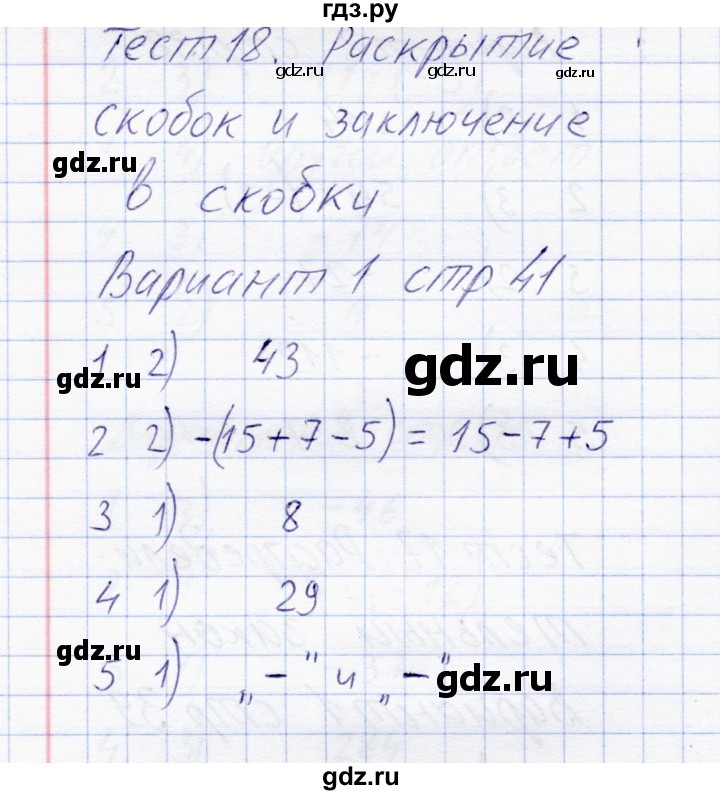 гдз.ру
Тест 18. Раскрытие
gdz.ru gdz.ru gdz.ru
скобок и заключение
gdz.ru
в скобки
Вариант 1 стр 41
1 2) 43
gdz.ru gdz.ru
2 2) -(15+7-5) = 15-7+5
3 1) 8
4 1) 29
gdz.ru
5 1) „-" и „-"
gdz.ru
gdz.ru